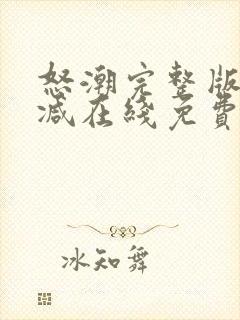 怒潮完整版
减在綫免費
冰知舞